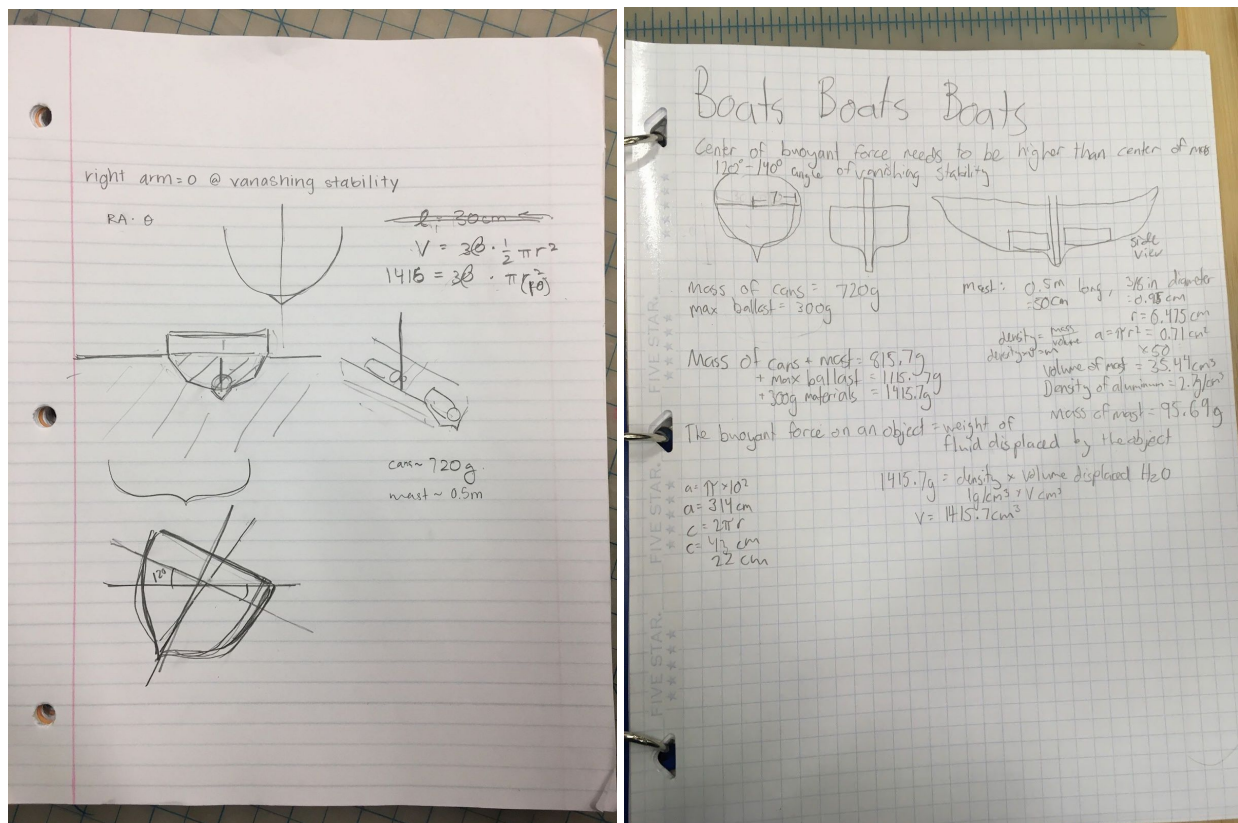 right arm = 0 @ vanashing stability
RA · θ
l = 30cm
V = 30 · 1/2 π r²
1415 = 30 · π r²
cans ~ 720 g
mast ~ 0.5m
120
Boats Boats Boats
Center of buoyant force needs to be higher than center of mass
120° - 140° angle of vanishing stability
7
side
view
Mass of cans = 720g
max ballast = 300g
mast: 0.5m long, 3/8 in diameter
= 50cm = 0.95 cm
r = 0.475 cm
density = mass/volume a = πr² = 0.71 cm²
× 50
Volume of mast = 35.44 cm³
Density of aluminum = 2.7g/cm³
Mass of mast = 95.69g
Mass of cans + mast = 815.7g
+ max ballast = 1115.7g
+300g materials = 1415.7g
The buoyant force on an object = weight of
fluid displaced by the object
1415.7g = density × volume displaced H2O
1g/cm³ × V cm³
V = 1415.7cm³
a = π × 10²
a = 314 cm
c = 2πr
c = 43 cm
22 cm
FIVE STAR.
FIVE STAR.
FIVE STAR.